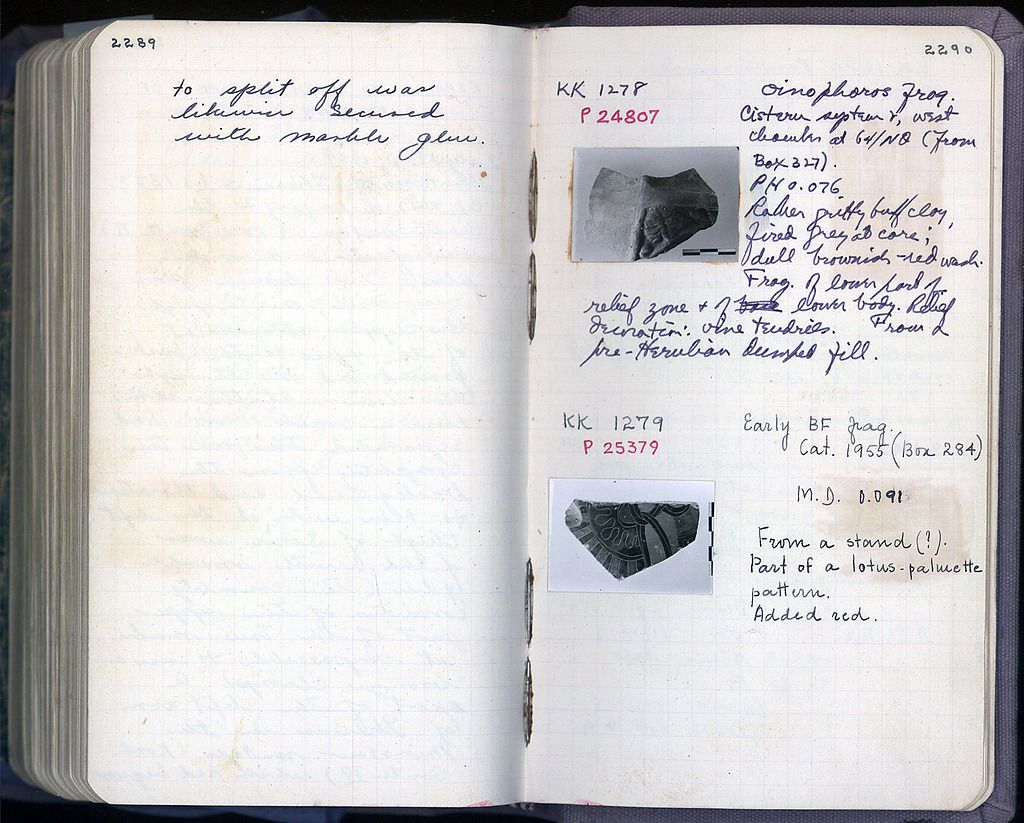 2289
to split off was
likewise secured
with marble glue.
2290
KK 1278
P 24807
Oinophoros frag.
Cistern system, west
chamber at 64/ΝΘ (From
Box 327).
PH 0.076
Rather gritty buff clay,
fired grey at core;
dull brownish-red wash.
Frag. of lower part of
relief zone + of lower body. Relief
decoration: vine tendrils. From a
pre-Herulian dumped fill.
KK 1279
P 25379
Early BF frag.
Cat. 1955 (Box 284)
M.D. 0.091
From a stand (?).
Part of a lotus-palmette
pattern.
Added red.